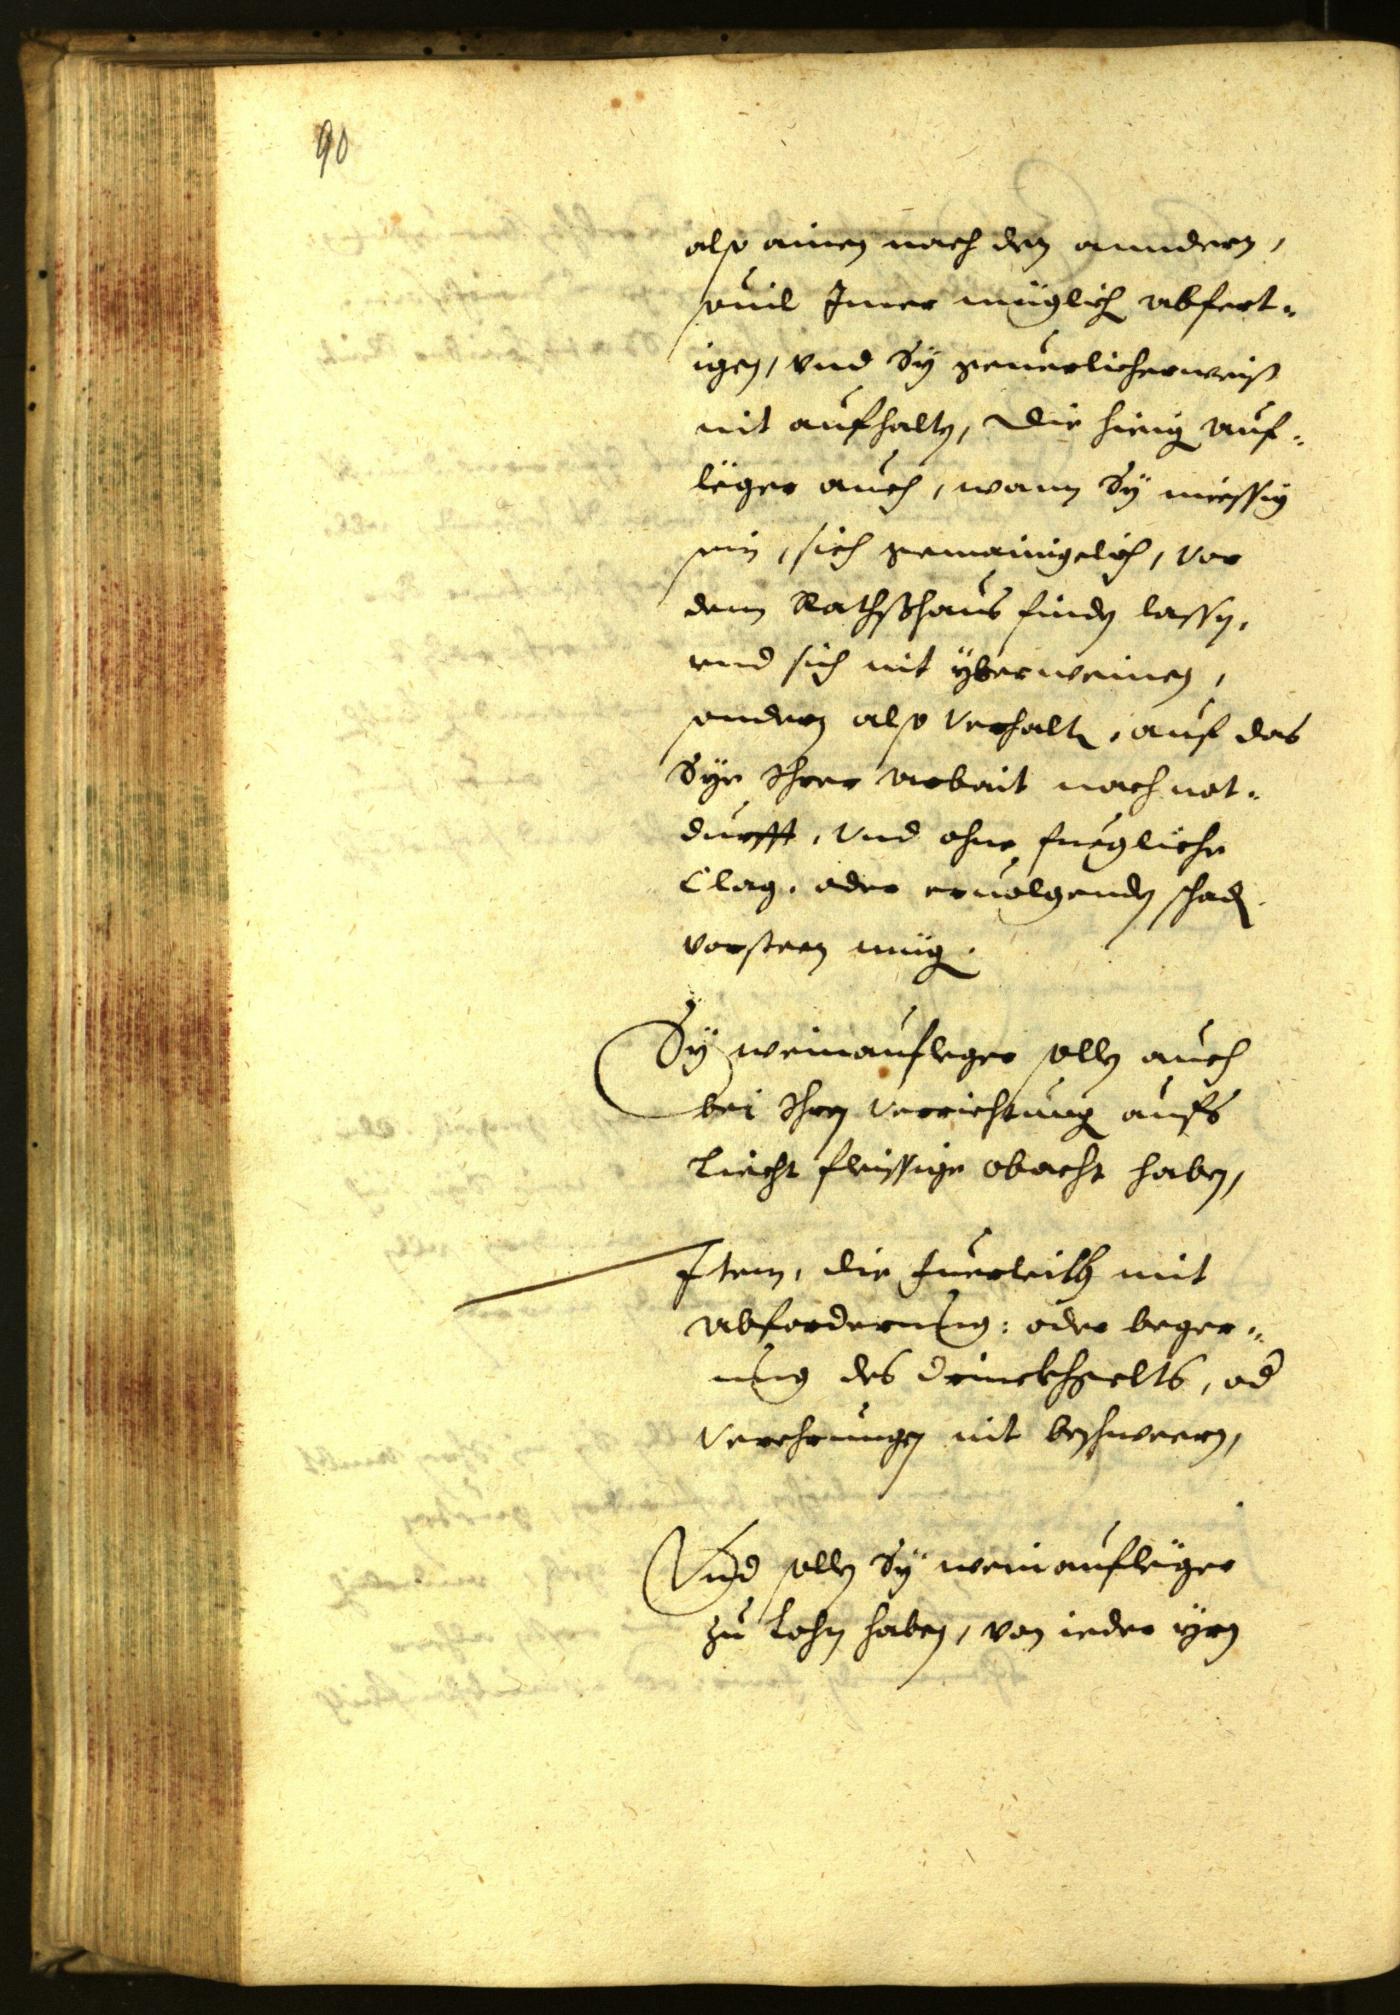 90
also ainen nach den anndern,
souil Imer müglich abfert-
igen, vnd Sÿ geuerlicherweiß
nit aufhalten, Die hieig Auf-
leger auch, wann Sÿ müessig
sein, sich gemainigclich, vor
dem Rathßhaus finden lassen,
vnd sich nit ÿberweinen,
sondern also verhalten, auf das
Sÿe Ihrer Arbait nach not-
durfft, vnd ohne fuegliche
Clag, oder eruolgenden schaden
vorsteen müg.
Sÿ weinaufleger sollen auch
bei Ihren verrichtung aufs
Liecht fleissige obacht haben,
Item, die fuerleith mit
abforderung: oder beger-
ung des Drinckhgelts, od
verehrungen nit beschweern,
Vnd sollen Sÿ weinaufleger
zu Lohn haben, von ieder ÿrn